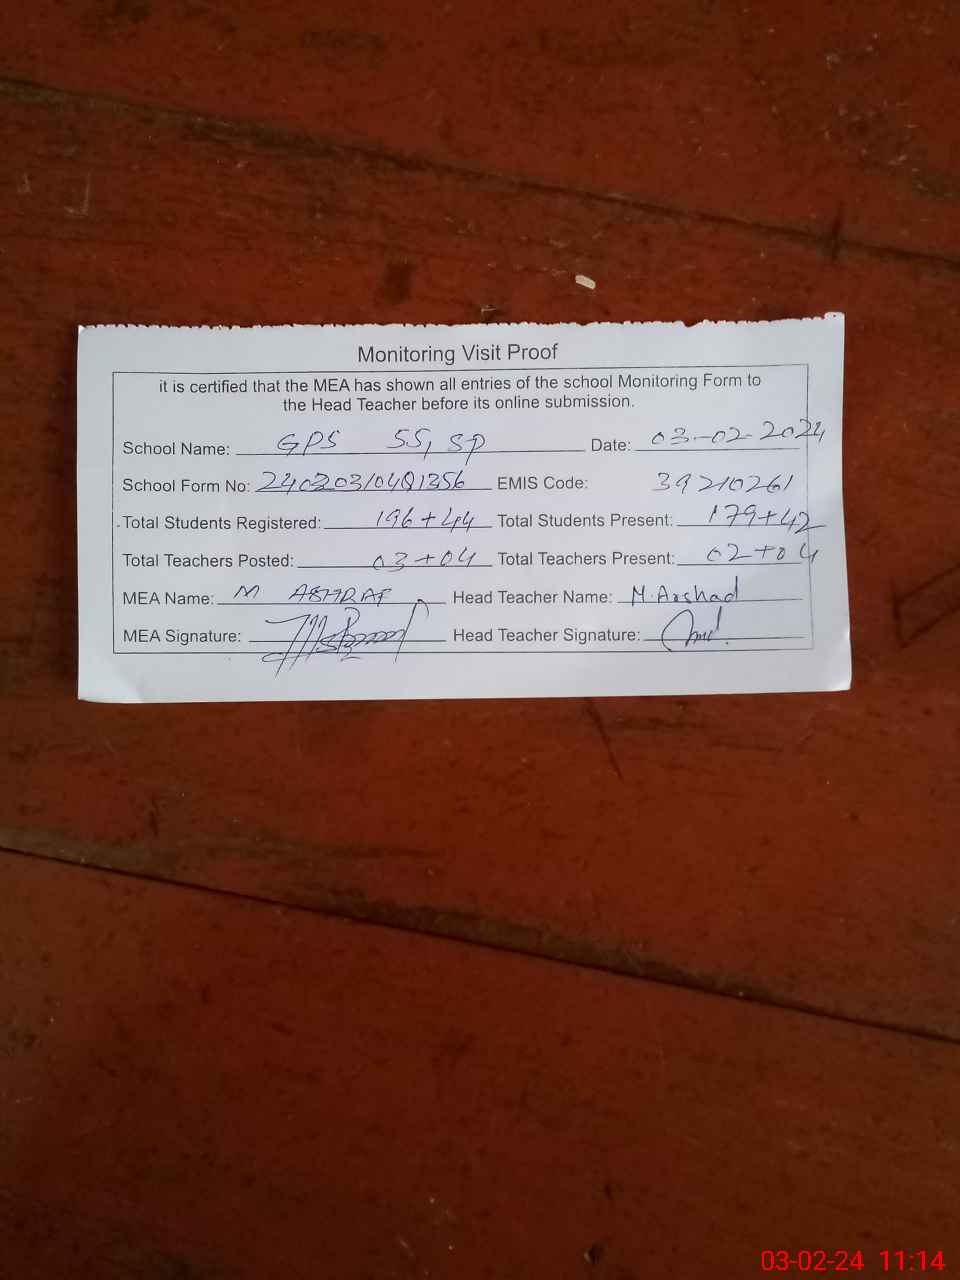 Monitoring Visit Proof
it is certified that the MEA has shown all entries of the school Monitoring Form to
the Head Teacher before its online submission.
School Name: GPS 55, SP Date: 03-02-2024
School Form No: 240203/04Q1356 EMIS Code: 39210261
Total Students Registered: 196+44 Total Students Present: 179+42
Total Teachers Posted: 03+04 Total Teachers Present: 02+04
MEA Name: M ASHRAF Head Teacher Name: M. Arshad
MEA Signature: Head Teacher Signature:
03-02-24 11:14